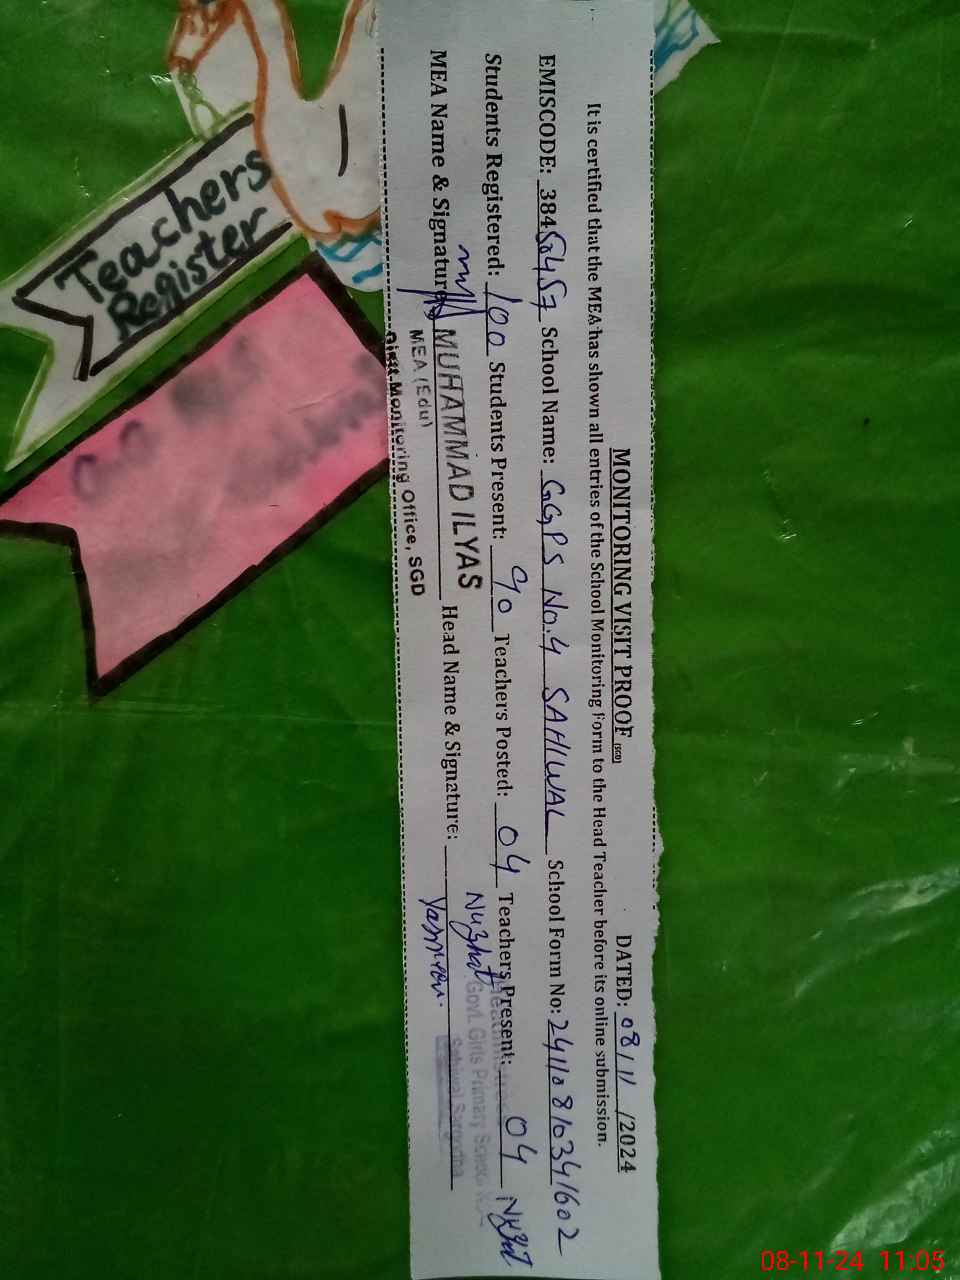 MONITORING VISIT PROOF (SGD) DATED: 08/11/2024
It is certified that the MEA has shown all entries of the School Monitoring Form to the Head Teacher before its online submission.
EMISCODE: 38450457 School Name: GGPS No.4 SAHIWAL School Form No:
Students Registered: 100 Students Present: 90 Teachers Posted: 04 Teachers Present: 04
MEA Name & Signature MUHAMMAD ILYAS Head Name & Signature: Nuzhat Yasmeen.
MEA (Edu)
Monitoring Office, SGD
Govt. Girls Primary School
Sahiwal Sargodha
Teachers
Register
08-11-24 11:05